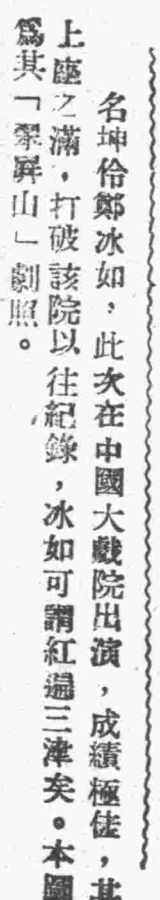 名坤伶鄭冰如，此次在中國大戲院出演，成績極佳，其
上座之滿，打破該院以往紀錄，冰如可謂紅遍三津矣。本圖
為其「翠屏山」劇照。